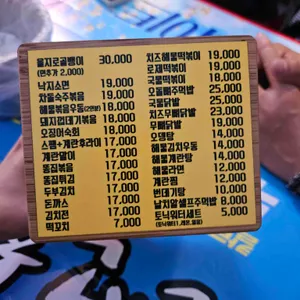 을지로골뱅이 30,000
(면추가 2,000)
낙지소면 19,000
차돌숙주볶음 19,000
해물볶음우동(2인분) 18,000
돼지껍데기볶음 18,000
오징어숙회 18,000
스팸+계란후라이 17,000
계란말이 17,000
똥집볶음 17,000
똥집튀김 17,000
두부김치 17,000
돈까스 17,000
김치전 17,000
떡꼬치 7,000
치즈해물떡볶이 19,000
로제떡볶이 19,000
국물떡볶이 18,000
오돌뼈주먹밥 25,000
국물닭발 25,000
치즈무뼈닭발 23,000
무뼈닭발 19,000
오뎅탕 14,000
해물김치우동 14,000
해물계란탕 14,000
해물라면 12,000
계란찜 12,000
번데기탕 10,000
날치알셀프주먹밥 8,000
토닉워터세트 5,000